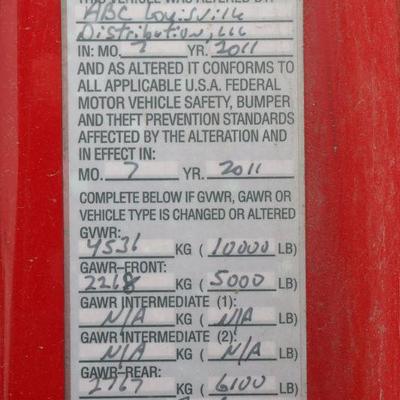 THIS VEHICLE WAS ALTERED BY:
ABC Louisville
Distribution, LLC
IN: MO. 7 YR. 2011
AND AS ALTERED IT CONFORMS TO
ALL APPLICABLE U.S.A. FEDERAL
MOTOR VEHICLE SAFETY, BUMPER
AND THEFT PREVENTION STANDARDS
AFFECTED BY THE ALTERATION AND
IN EFFECT IN:
MO. 7 YR. 2011
COMPLETE BELOW IF GVWR, GAWR OR
VEHICLE TYPE IS CHANGED OR ALTERED
GVWR:
4536 KG ( 10000 LB)
GAWR-FRONT:
2268 KG ( 5000 LB)
GAWR INTERMEDIATE (1):
N/A KG ( N/A LB)
GAWR INTERMEDIATE (2):
N/A KG ( N/A LB)
GAWR-REAR:
2767 KG ( 6100 LB)